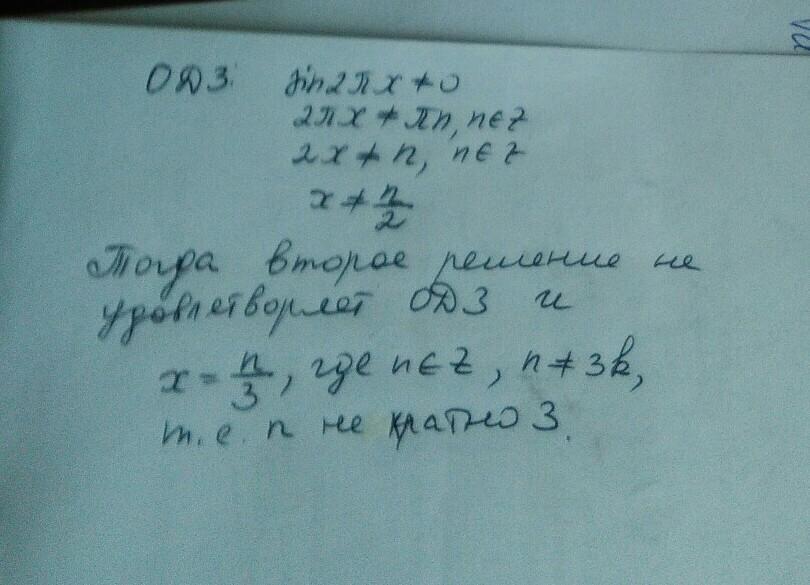 ОДЗ: sin2πx≠0
2πx≠πn, n∈Z
2x≠n, n∈Z
x≠n/2
Тогда второе решение не
удовлетворяет ОДЗ и
x=n/3, где n∈Z, n≠3k,
т.е. n не кратно 3.